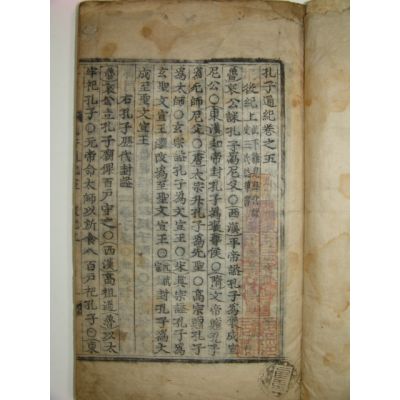 孔子通紀卷之五
後紀上
魯哀公誄孔子爲尼父○西漢平帝諡孔子爲褒成宣
尼公○東漢和帝封孔子爲褒尊侯○隋文帝贈孔子
爲先師尼父○唐太宗升孔子爲先聖○高宗贈孔子
爲太師○玄宗諡孔子爲文宣王○宋眞宗諡孔子爲
玄聖文宣王○改爲至聖文宣王○封孔子爲大
成至聖文宣王
右孔子歷代封諡
魯哀公立孔子廟守之○西漢高祖過魯以太
牢祀孔子○元帝命太師以所食八百戶祀孔子○東